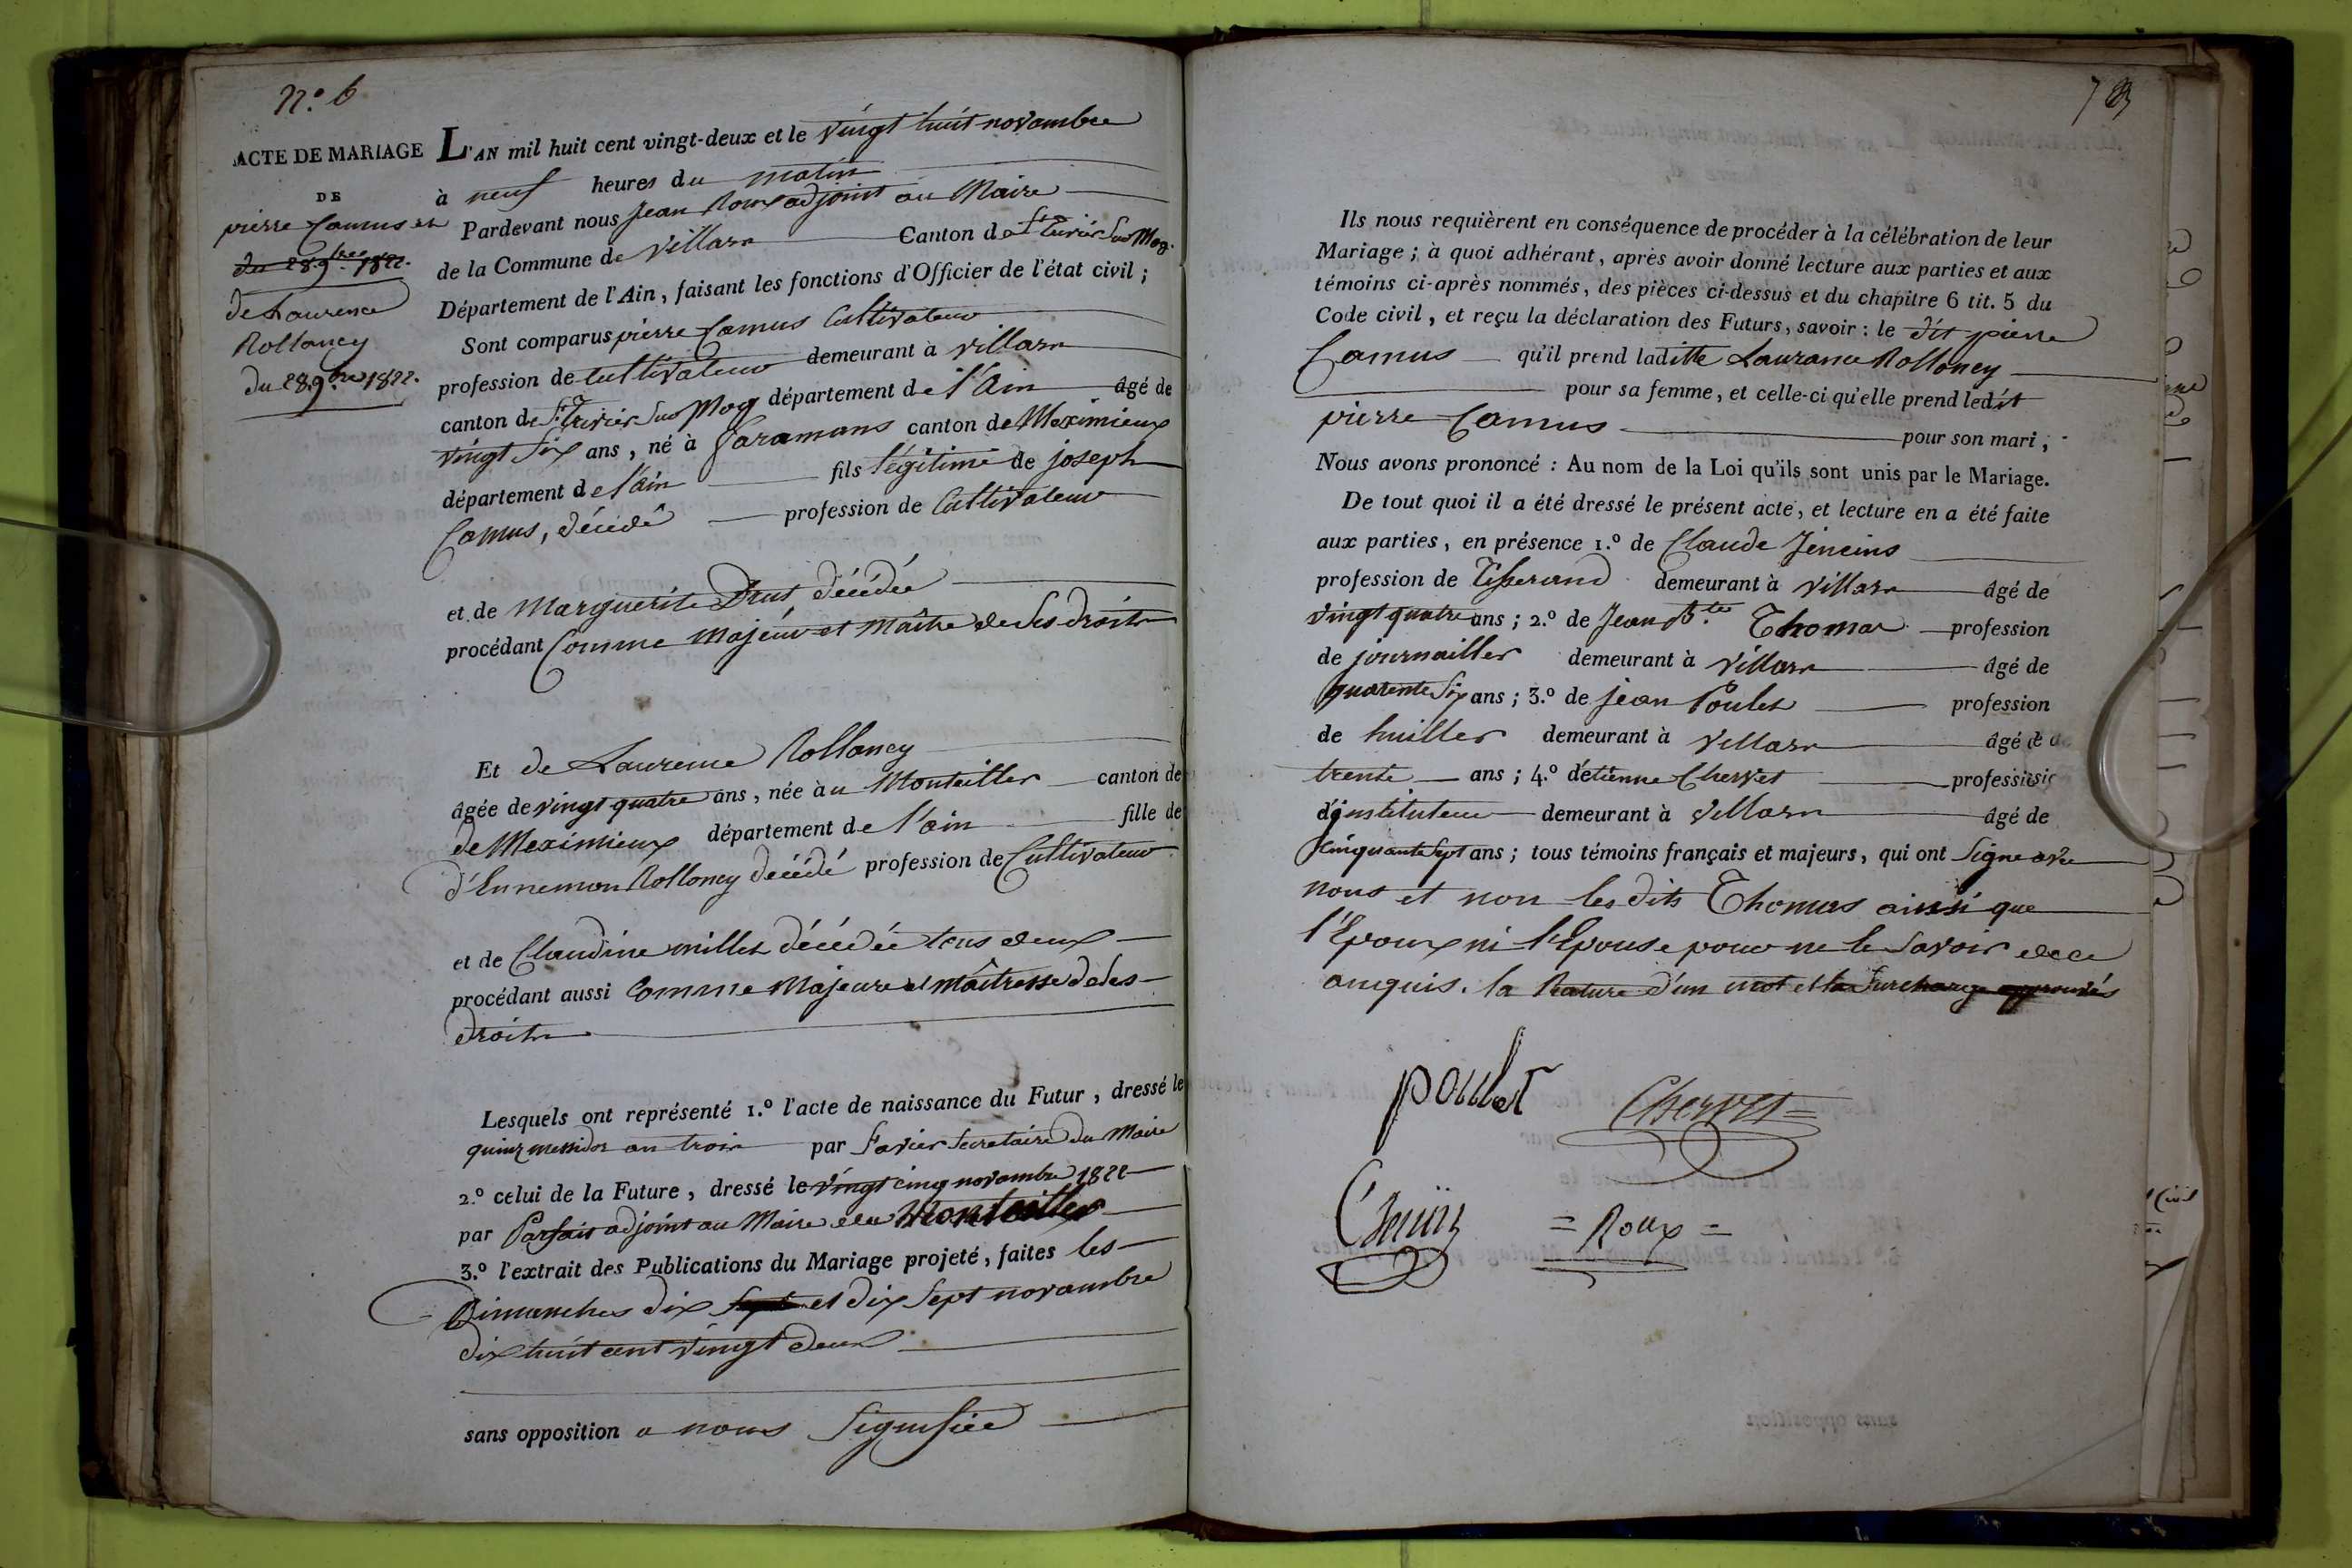 N.º 6
ACTE DE MARIAGE
DE
pierre Camus et
du 28 9.bre 1822.
de Laurence
Rollancy
du 28 9.bre 1822.
L'AN mil huit cent vingt-deux et le vingt huit novambre
à neuf heures du matin
Pardevant nous Jean Roux adjoint au Maire
de la Commune de Villars Canton de St trivier Sur Mog.
Département de l'Ain, faisant les fonctions d'Officier de l'état civil;
Sont comparus pierre Camus Cultivateur
profession de Cultivateur demeurant à Villars
canton de St Trivier Sur Mog département de l'Ain âgé de
vingt Six ans, né à faramans canton de Meximieux
département de l'ain fils légitime de joseph
Camus, décédé profession de Cultivateur
et de Marguerite Drut décédée
procédant Comme Majeur et Maître de Ses droits
Et de Laurence Rollancy
âgée de vingt quatre ans, née au Montellier canton de
de Meximieux département de l'ain fille de
d'Ennemon Rollancy décédé profession de Cultivateur
et de Claudine millet décédée tous deux
procédant aussi Comme Majeure et Maîtresse de Ses
droits
Lesquels ont représenté 1.º l'acte de naissance du Futur, dressé le
quinz messidor an trois par favier Secretaire du Maire
2.º celui de la Future, dressé le vingt cinq novambre 1822
par Parfait adjoint au Maire du Montellier
3.º l'extrait des Publications du Mariage projeté, faites les
Dimanches dix Sept et dix Sept novambre
dix huit cent vingt deux
sans opposition a nous Signifiée
78
Ils nous requièrent en conséquence de procéder à la célébration de leur
Mariage; à quoi adhérant, après avoir donné lecture aux parties et aux
témoins ci-après nommés, des pièces ci-dessus et du chapitre 6 tit. 5 du
Code civil, et reçu la déclaration des Futurs, savoir: le dit pierre
Camus qu'il prend laditte Laurance Rolloncy
pour sa femme, et celle-ci qu'elle prend ledit
pierre Camus pour son mari;
Nous avons prononcé: Au nom de la Loi qu'ils sont unis par le Mariage.
De tout quoi il a été dressé le présent acte, et lecture en a été faite
aux parties, en présence 1.º de Claude
profession de Tisserand demeurant à Villars âgé de
vingt quatre ans; 2.º de Jean B.te Thomas profession
de journailler demeurant à Villars âgé de
quarente Six ans; 3.º de jean Poulet profession
de huiller demeurant à Villars âgé de
trente ans; 4.º d'étienne Chervet profession
d'jnstituteur demeurant à Villars âgé de
Cinquante Sept ans; tous témoins français et majeurs, qui ont Signe avec
nous et non les dits Thomas ainssi que
l'Epoux ni l'Epouse pour ne le Savoir de ce
anquis. la Rature d'un mot et la Surcharge approuvés
poulet
Chervet
= Roux =